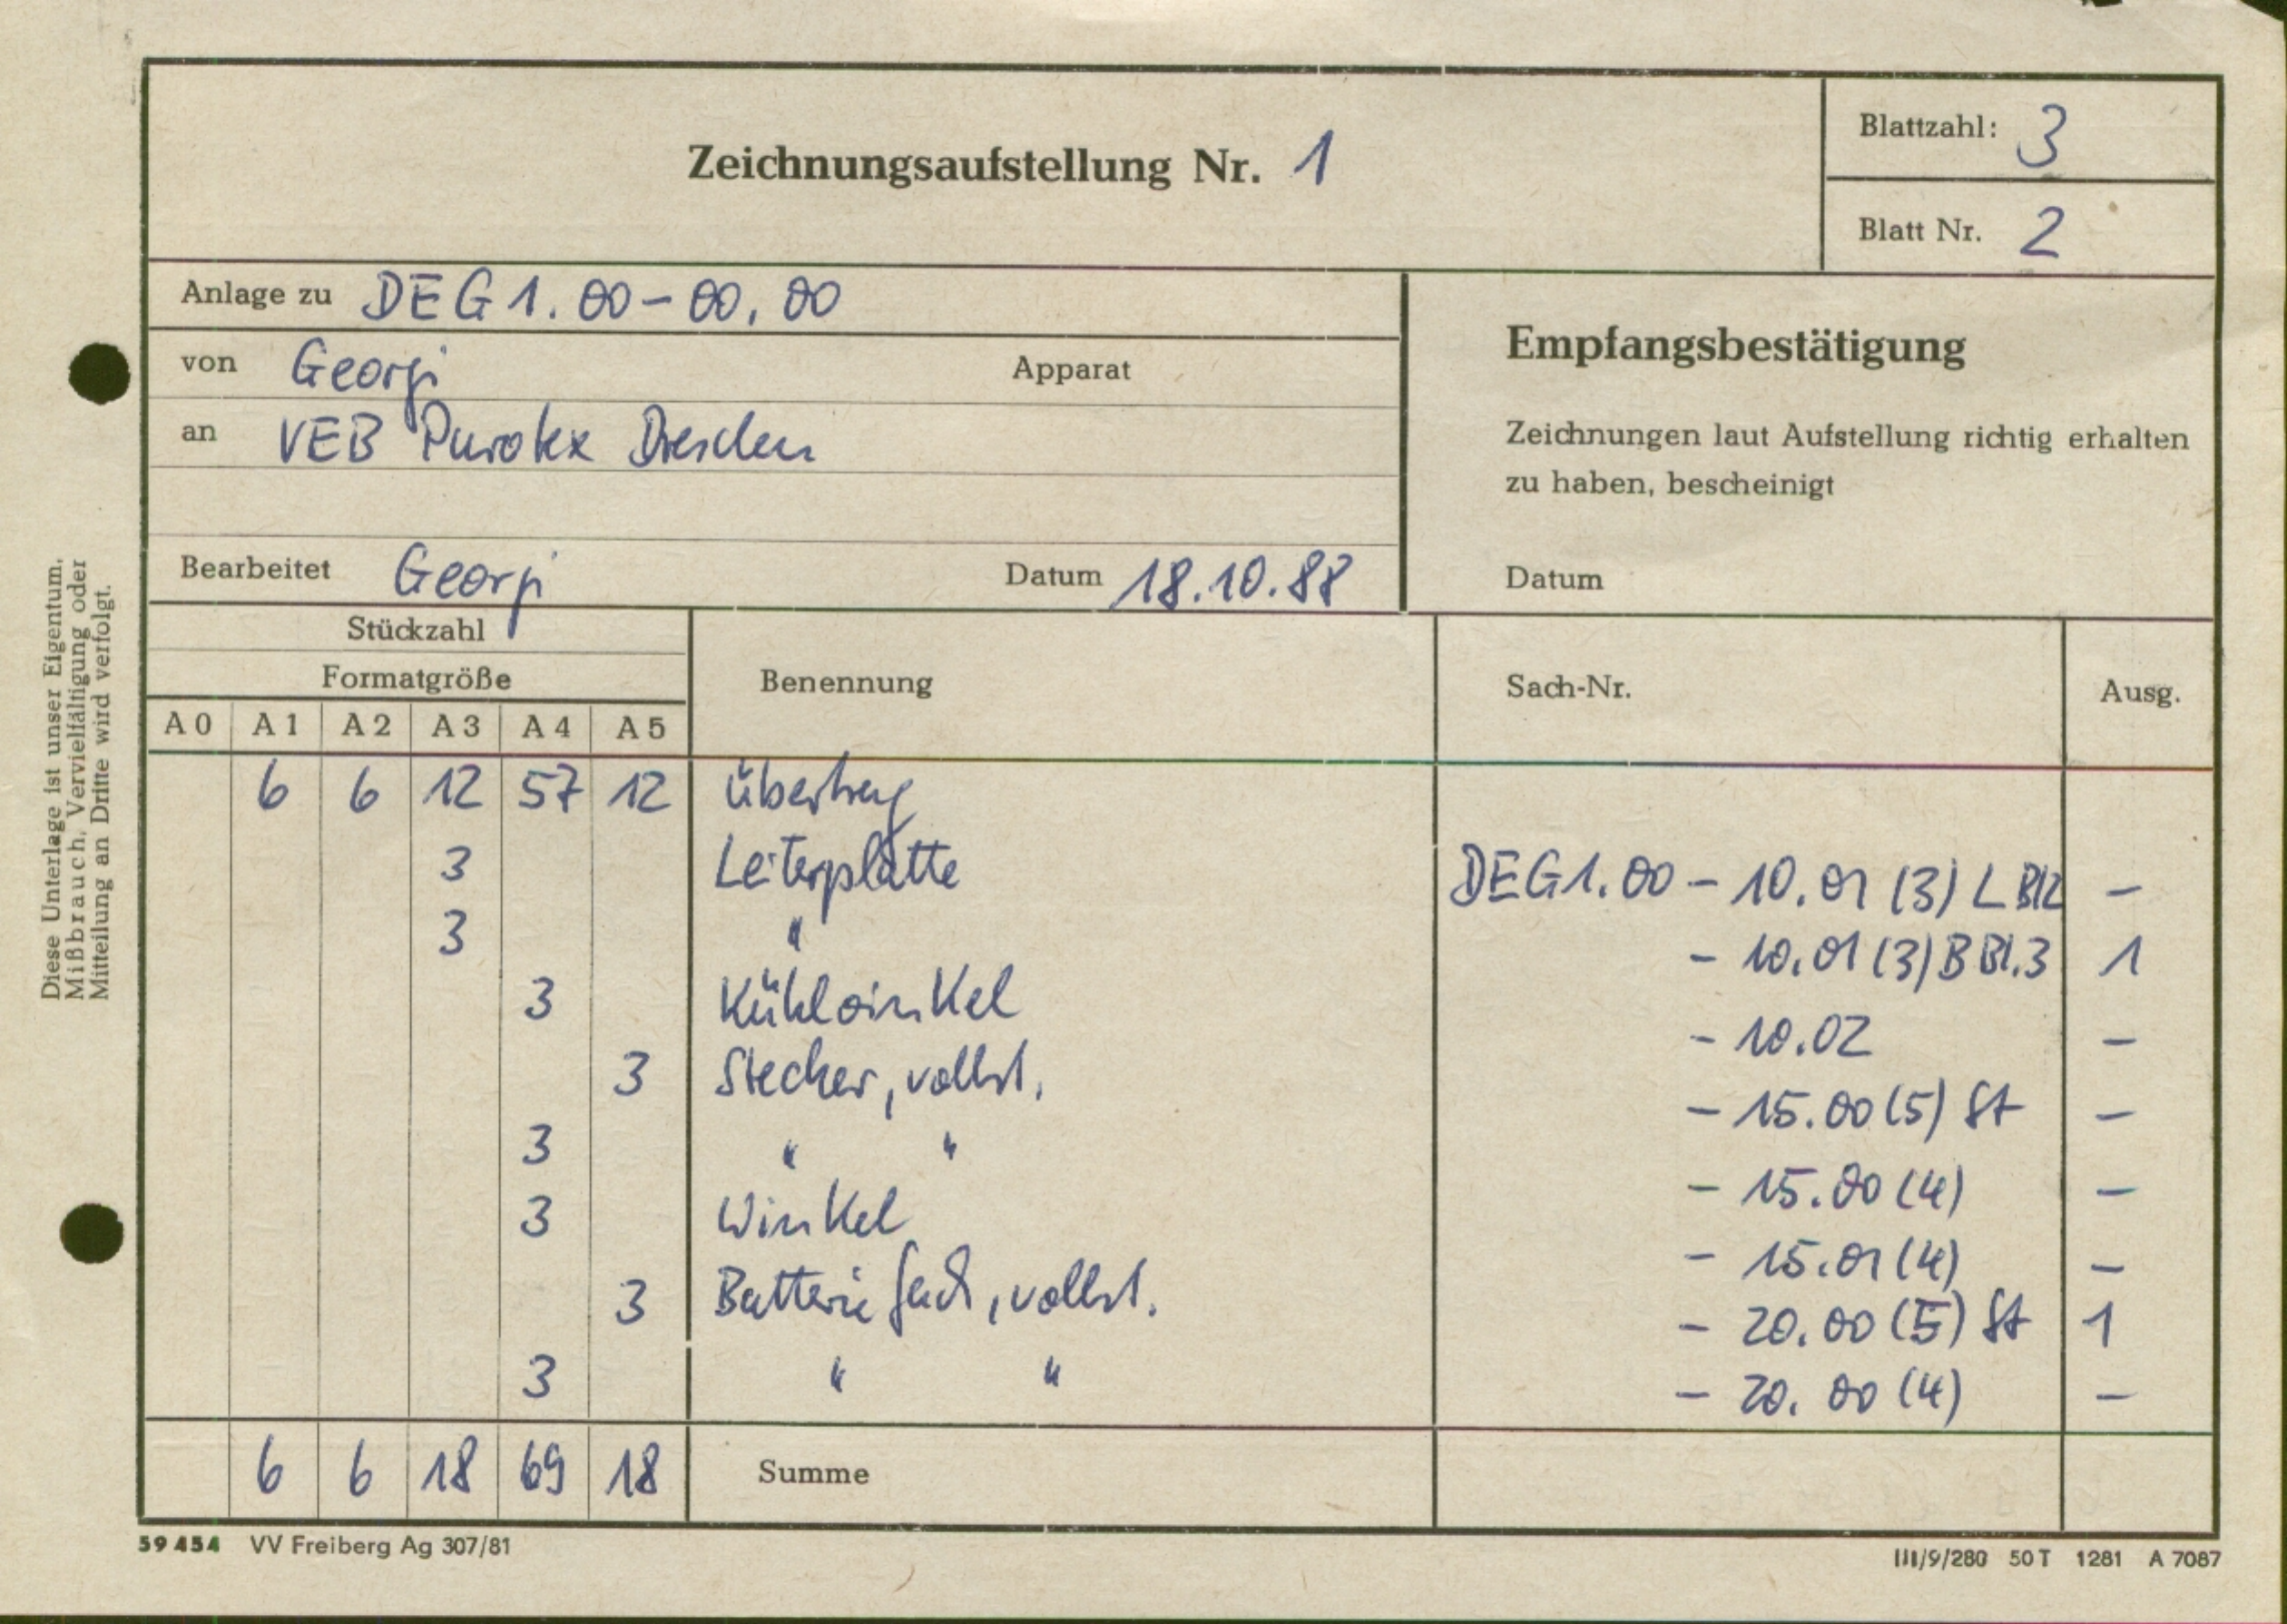 Zeichnungsaufstellung Nr. 1
Blattzahl: 3
Blatt Nr. 2
Anlage zu DEG 1.00-00.00
von Georgi Apparat
an VEB Purotex Dresden
Bearbeitet Georgi Datum 18.10.88
Empfangsbestätigung
Zeichnungen laut Aufstellung richtig erhalten
zu haben, bescheinigt
Datum
Stückzahl
Formatgröße
A 0 A 1 A 2 A 3 A 4 A 5 Benennung Sach-Nr. Ausg.
6 6 12 57 12 Übertrag
3 Leiterplatte DEG1.00 - 10.01 (3) L Bl2 -
3 " - 10.01 (3) B Bl.3 1
3 Kühlwinkel - 10.02 -
3 Stecker, vollst. - 15.00 (5) St -
3 " " - 15.00 (4) -
3 Winkel - 15.01 (4) -
3 Batteriefach, vollst. - 20.00 (5) St 1
3 " " - 20.00 (4) -
6 6 18 69 18 Summe
59 454 VV Freiberg Ag 307/81
III/9/280 50 T 1281 A 7087
Diese Unterlage ist unser Eigentum.
Mißbrauch, Vervielfältigung oder
Mitteilung an Dritte wird verfolgt.